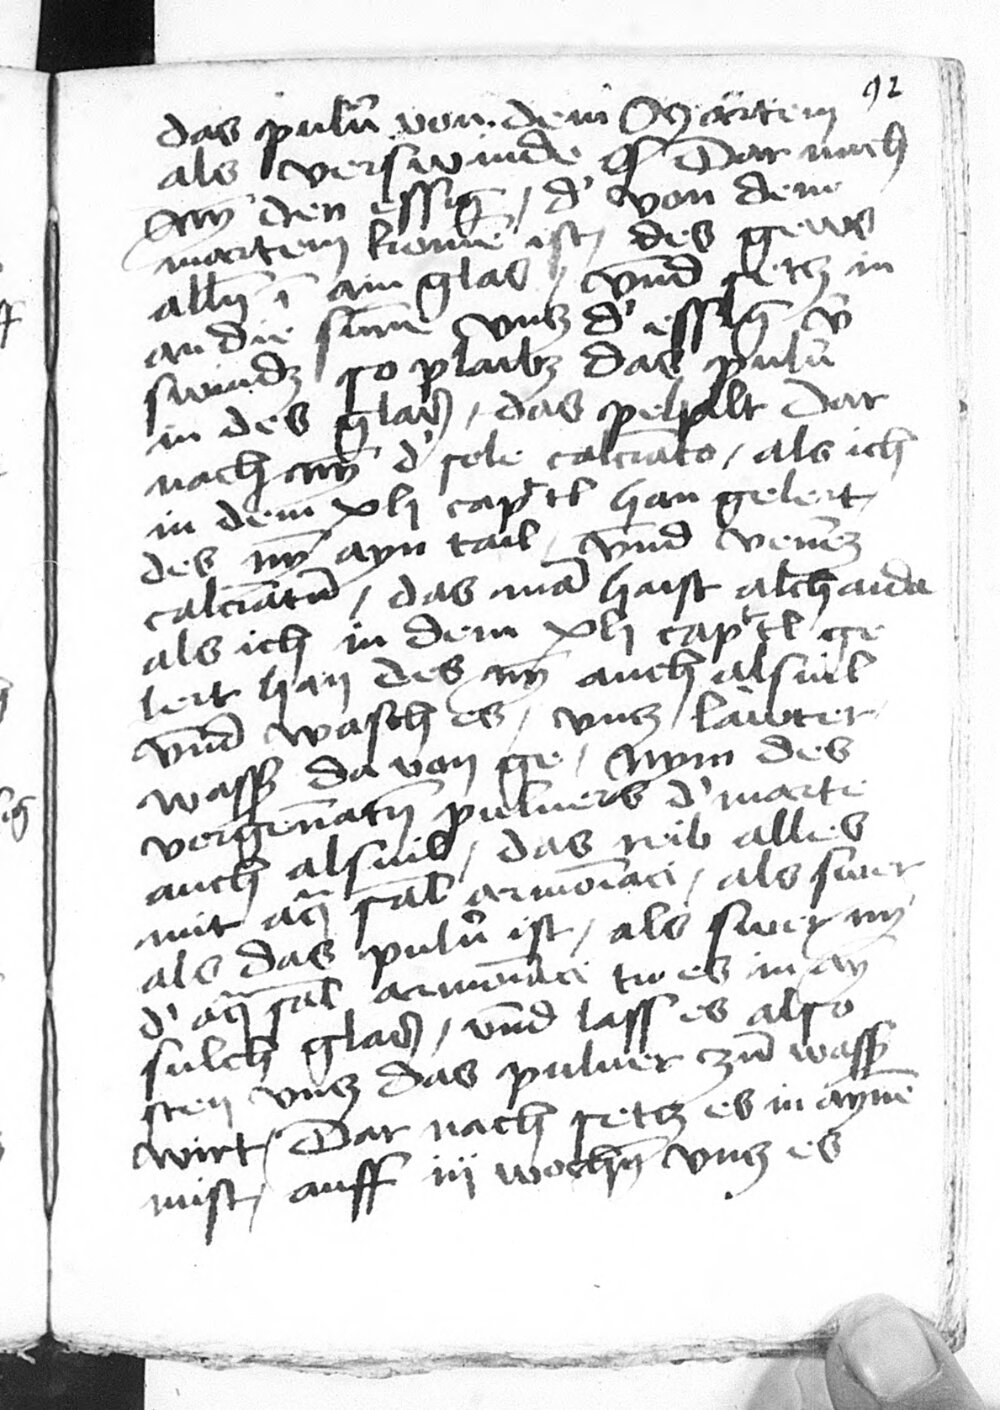 92
das pulũ von dem Martem
als verswinde ist Dar nach
Nỹ den essig / d' von dem
martem kome ist / des gews
alln̄ ī ain glas / vnd setz in
an die sunne vntz d' essig v̄
swindz so plaibz das pulũ
in des glas / das pehalt Dar
nach nỹ d' sole calcinato / als ich
in dem xlj capitl han gelert /
des nỹ ayn tail / vnd venez
calcinatũ / das mā haist alchaida
als ich in dem xlj capitl ge
lert han des nỹ auch alsuil
vnd wasch es / vntz lauter
wass' da von ge / Nym des
vergenatn̄ puluers d' marte
auch alsuil / das reib alles
mit aq̃ sal armoniaci / als swer
als das pulũ ist / als swer nỹ
d' aq̃ sal armoniaci tu es in ay
sulch glas / vnd lass es also
sten vntz das puluer czũ wass'
wirt / Dar nach setz es in aynē
mist / auff iij wochn̄ vntz es